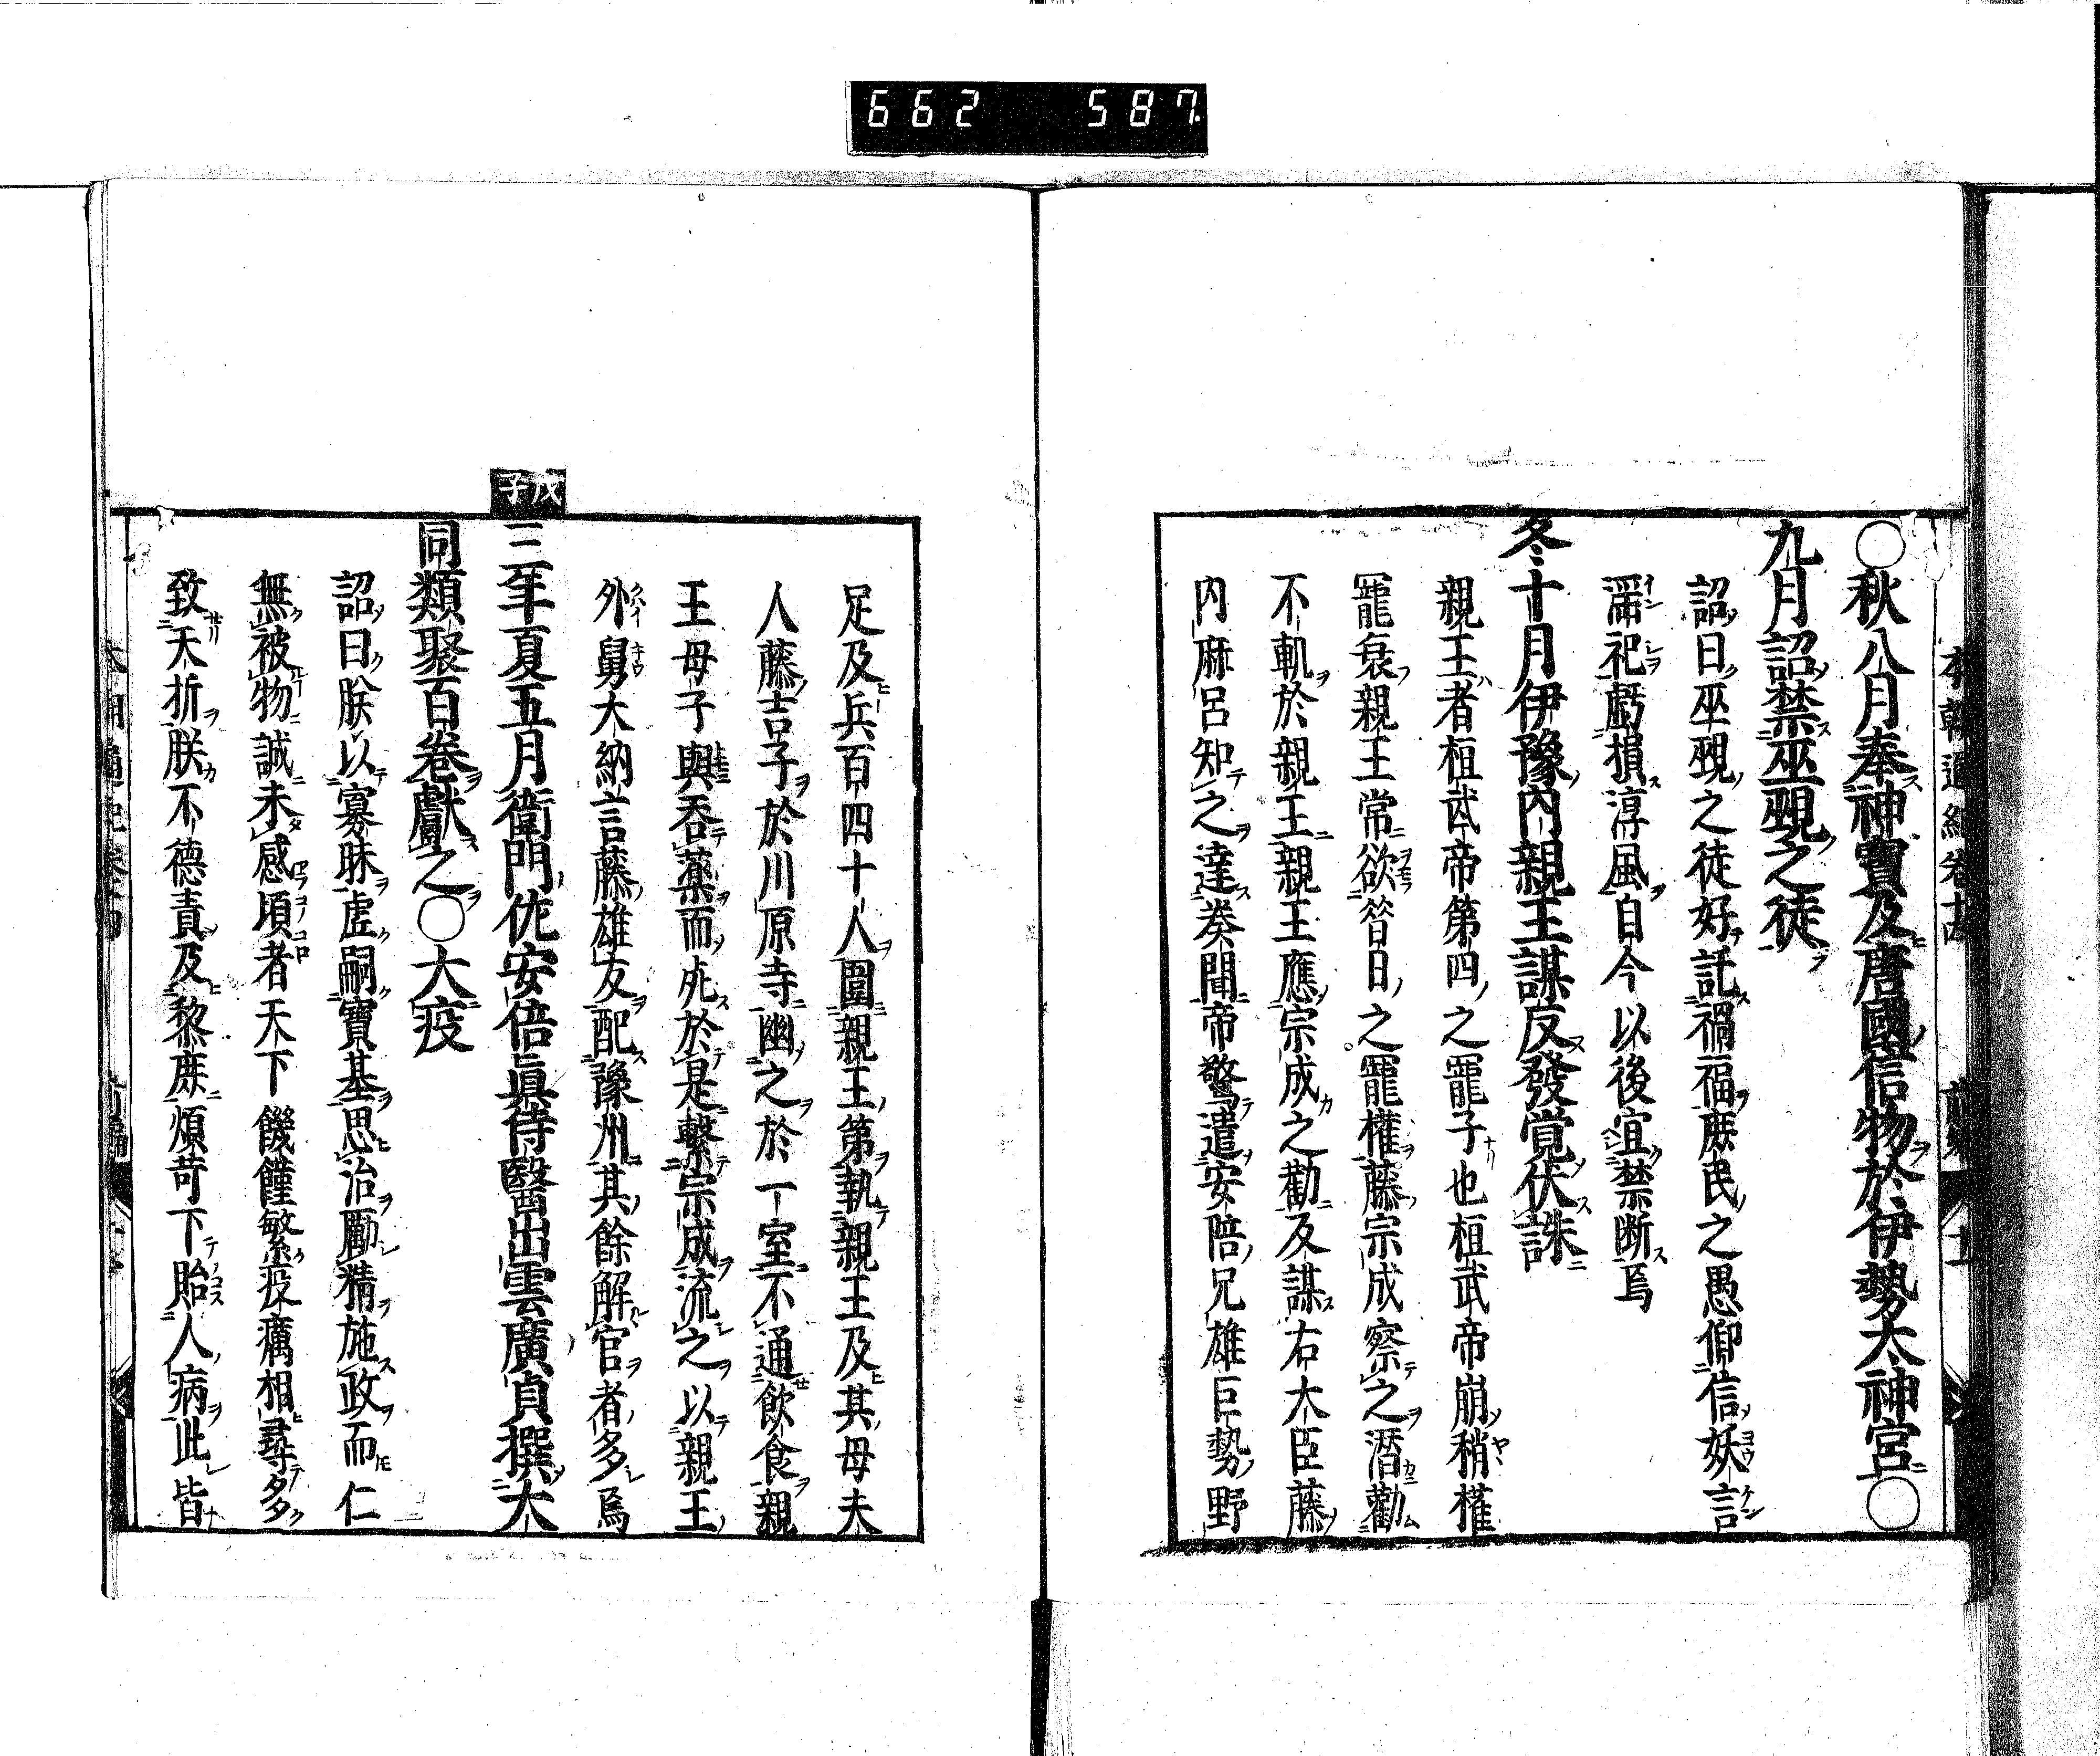 662 587
〇秋八月奉神寶及唐國信物於伊勢太神宮〇
九月詔禁巫覡之徒
詔曰巫覡之徒好託禍福庶民之愚仰信妖言
淫祀虧損淳風自今以後宜禁断焉
冬十月伊豫内親王謀反發覚伏誅
親王者桓武帝第四之寵子也桓武帝崩稍權
寵衰親王常欲昝日之寵權藤宗成察之潛勸
不軌於親王親王應宗成之勸反謀右大臣藤
内麻呂知之達奏聞帝驚遣安陪兄雄巨勢野
足及兵百四十人圍親王第執親王及其母夫
人藤吉子於川原寺幽之於一室不通飲食親
王母子與吞藥而死於是繋宗成流之以親王
外舅大納言藤雄友配豫州其餘解官者多焉
戊子
三年夏五月衛門佐安倍眞侍醫出雲廣貞撰大
同類聚百卷獻之〇大疫
詔曰朕以寡昧虗嗣寶基思治勵精施政而仁
無被物誠未感頃者天下饑饉繁疫癘相尋多
致夭折朕不德責及黎庶煩苛下貽人病此皆